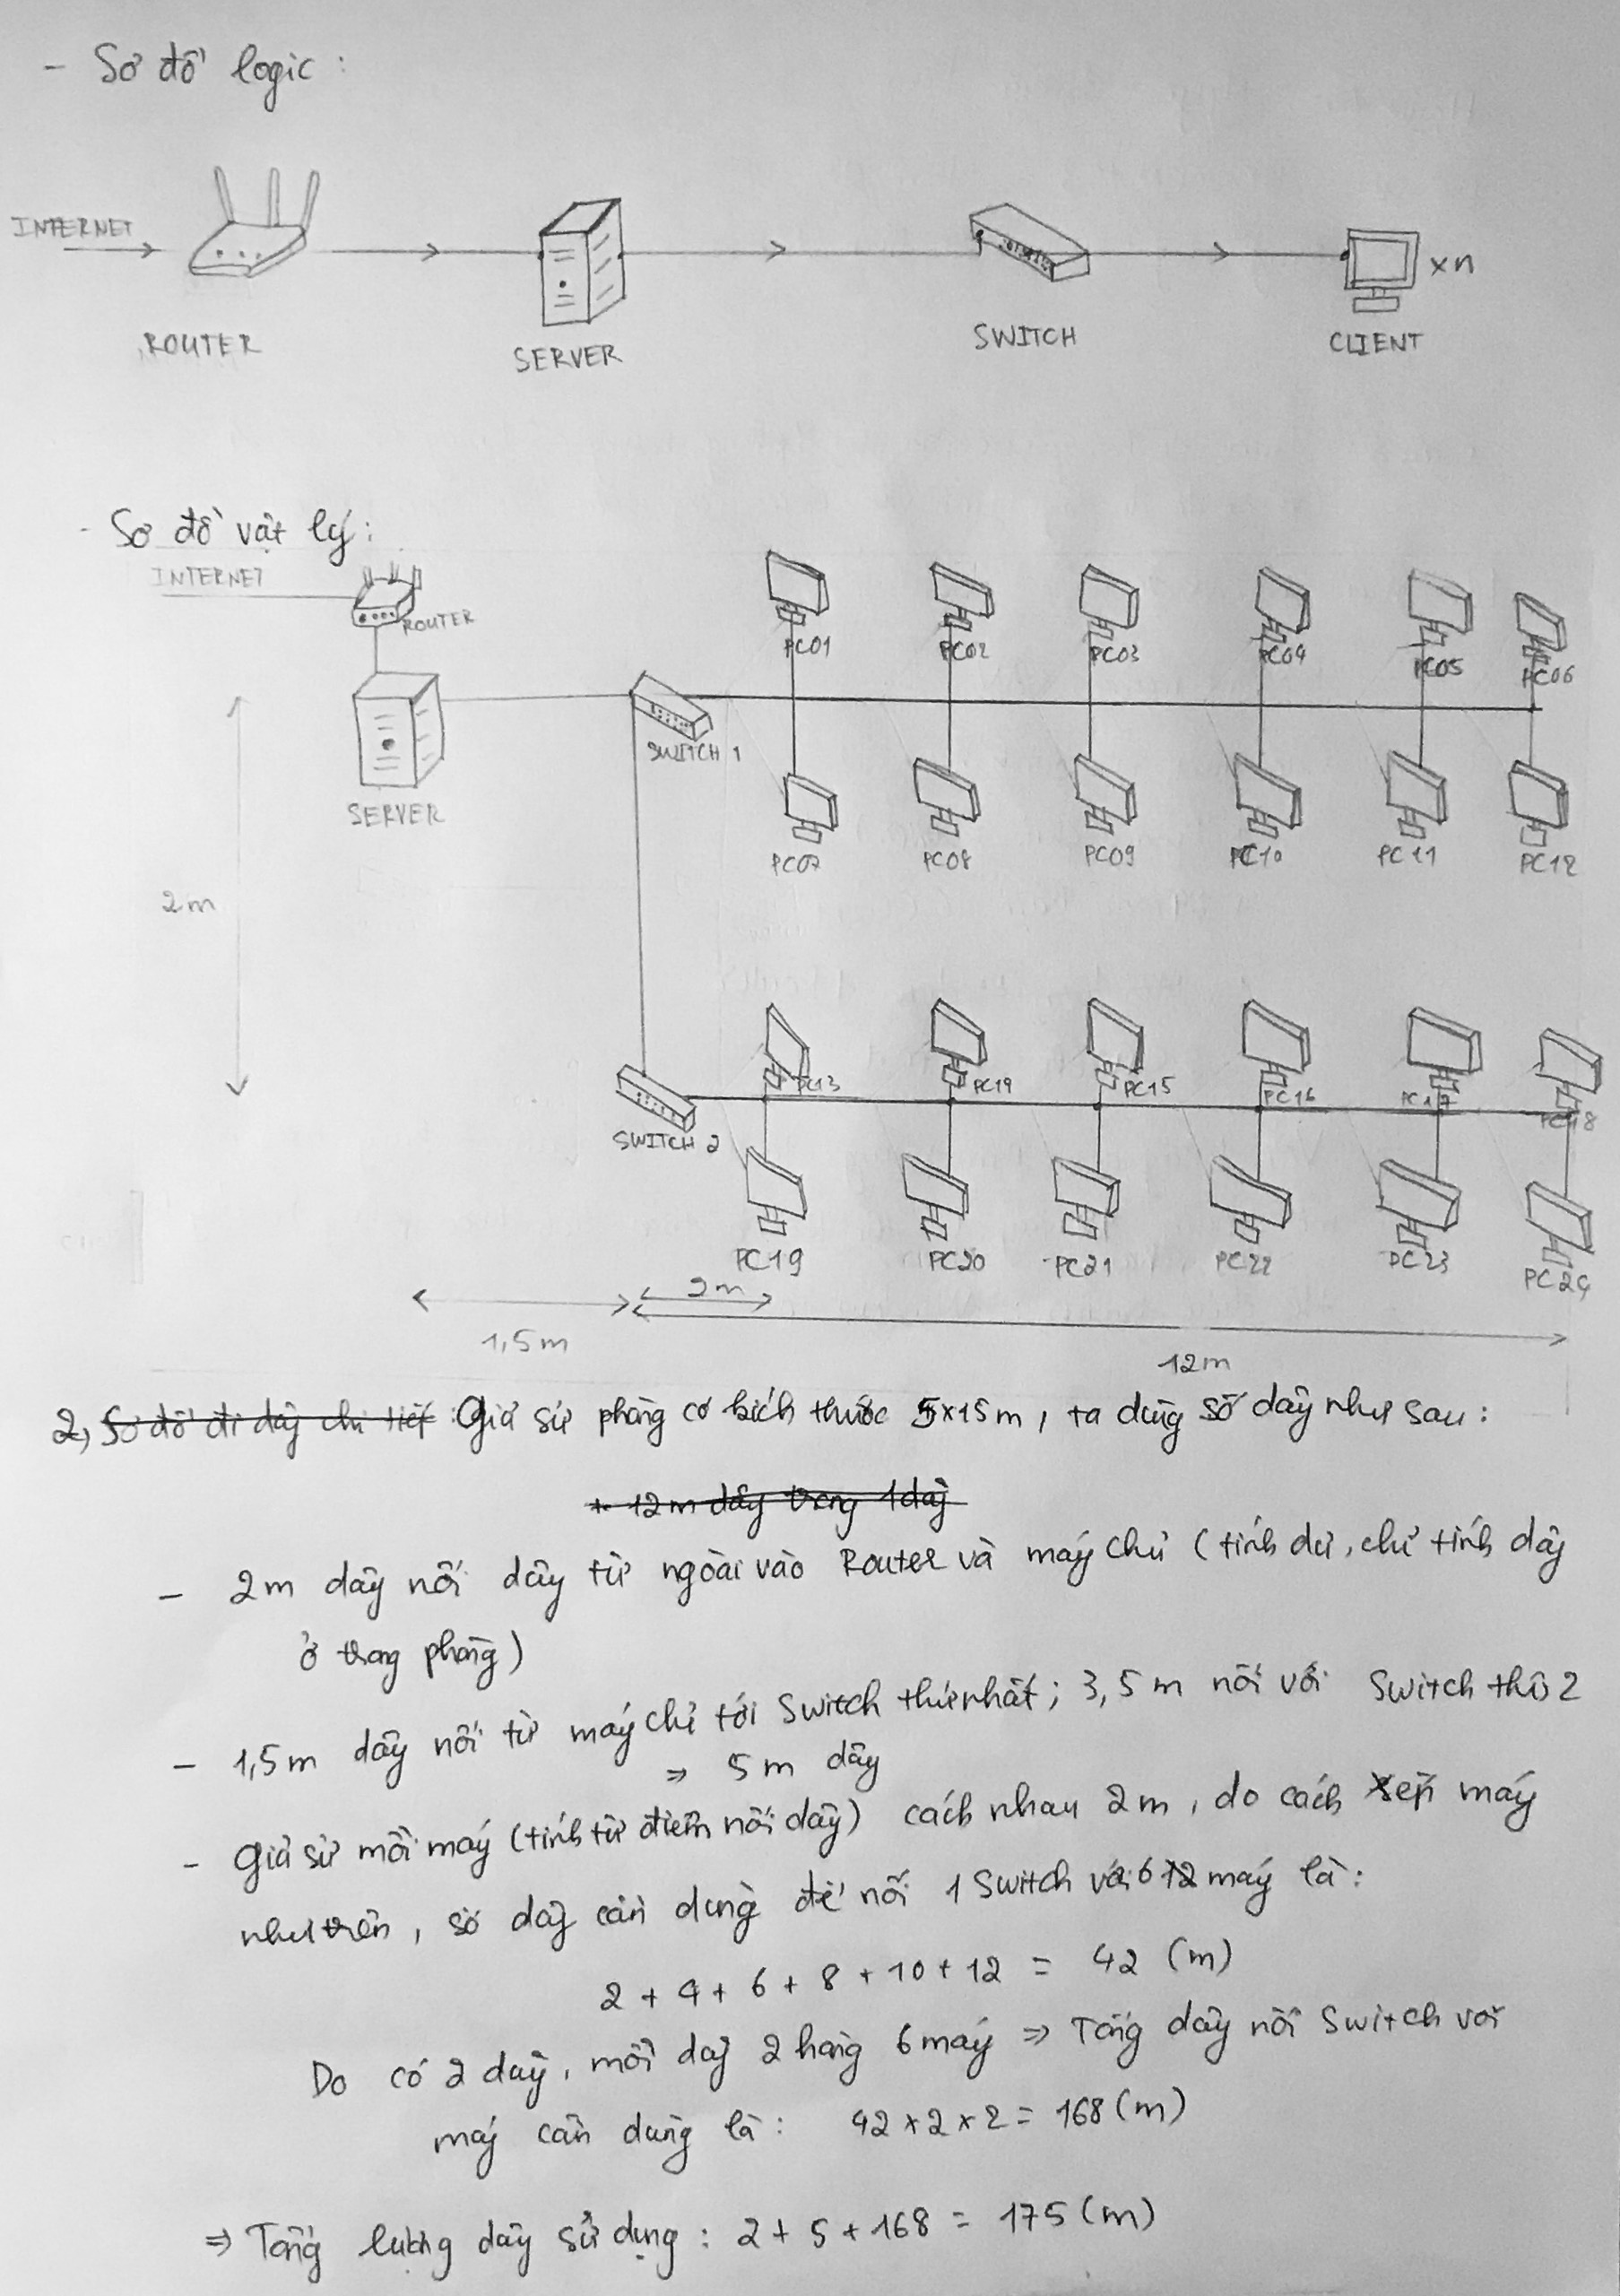 - Sơ đồ logic :
INTERNET
ROUTER
SERVER
SWITCH
CLIENT
xn
- Sơ đồ vật lý :
INTERNET
ROUTER
PC01 PC02 PC03 PC04 PC05 PC06
SWITCH 1
SERVER
PC07 PC08 PC09 PC10 PC11 PC12
2m
PC13 PC14 PC15 PC16 PC17 PC18
SWITCH 2
PC19 PC20 PC21 PC22 PC23 PC24
2m
1,5m
12m
2, Sơ đồ đi dây chi tiết : Giả sử phòng có kích thước 5x15m, ta dùng số dây như sau :
+ 12m dây trong 1 dãy
- 2m dây nối dây từ ngoài vào Router và máy chủ (tính dư, chỉ tính dây
ở trong phòng)
- 1,5m dây nối từ máy chủ tới Switch thứ nhất ; 3,5m nối với Switch thứ 2
⇒ 5m dây
- Giả sử mỗi máy (tính từ điểm nối dây) cách nhau 2m, do cách xếp máy
như trên, số dây cần dùng để nối 1 Switch với 6 máy là :
2 + 4 + 6 + 8 + 10 + 12 = 42 (m)
Do có 2 dãy, mỗi dãy 2 hàng 6 máy ⇒ Tổng dây nối Switch với
máy cần dùng là : 42 x 2 x 2 = 168 (m)
⇒ Tổng lượng dây sử dụng : 2 + 5 + 168 = 175 (m)